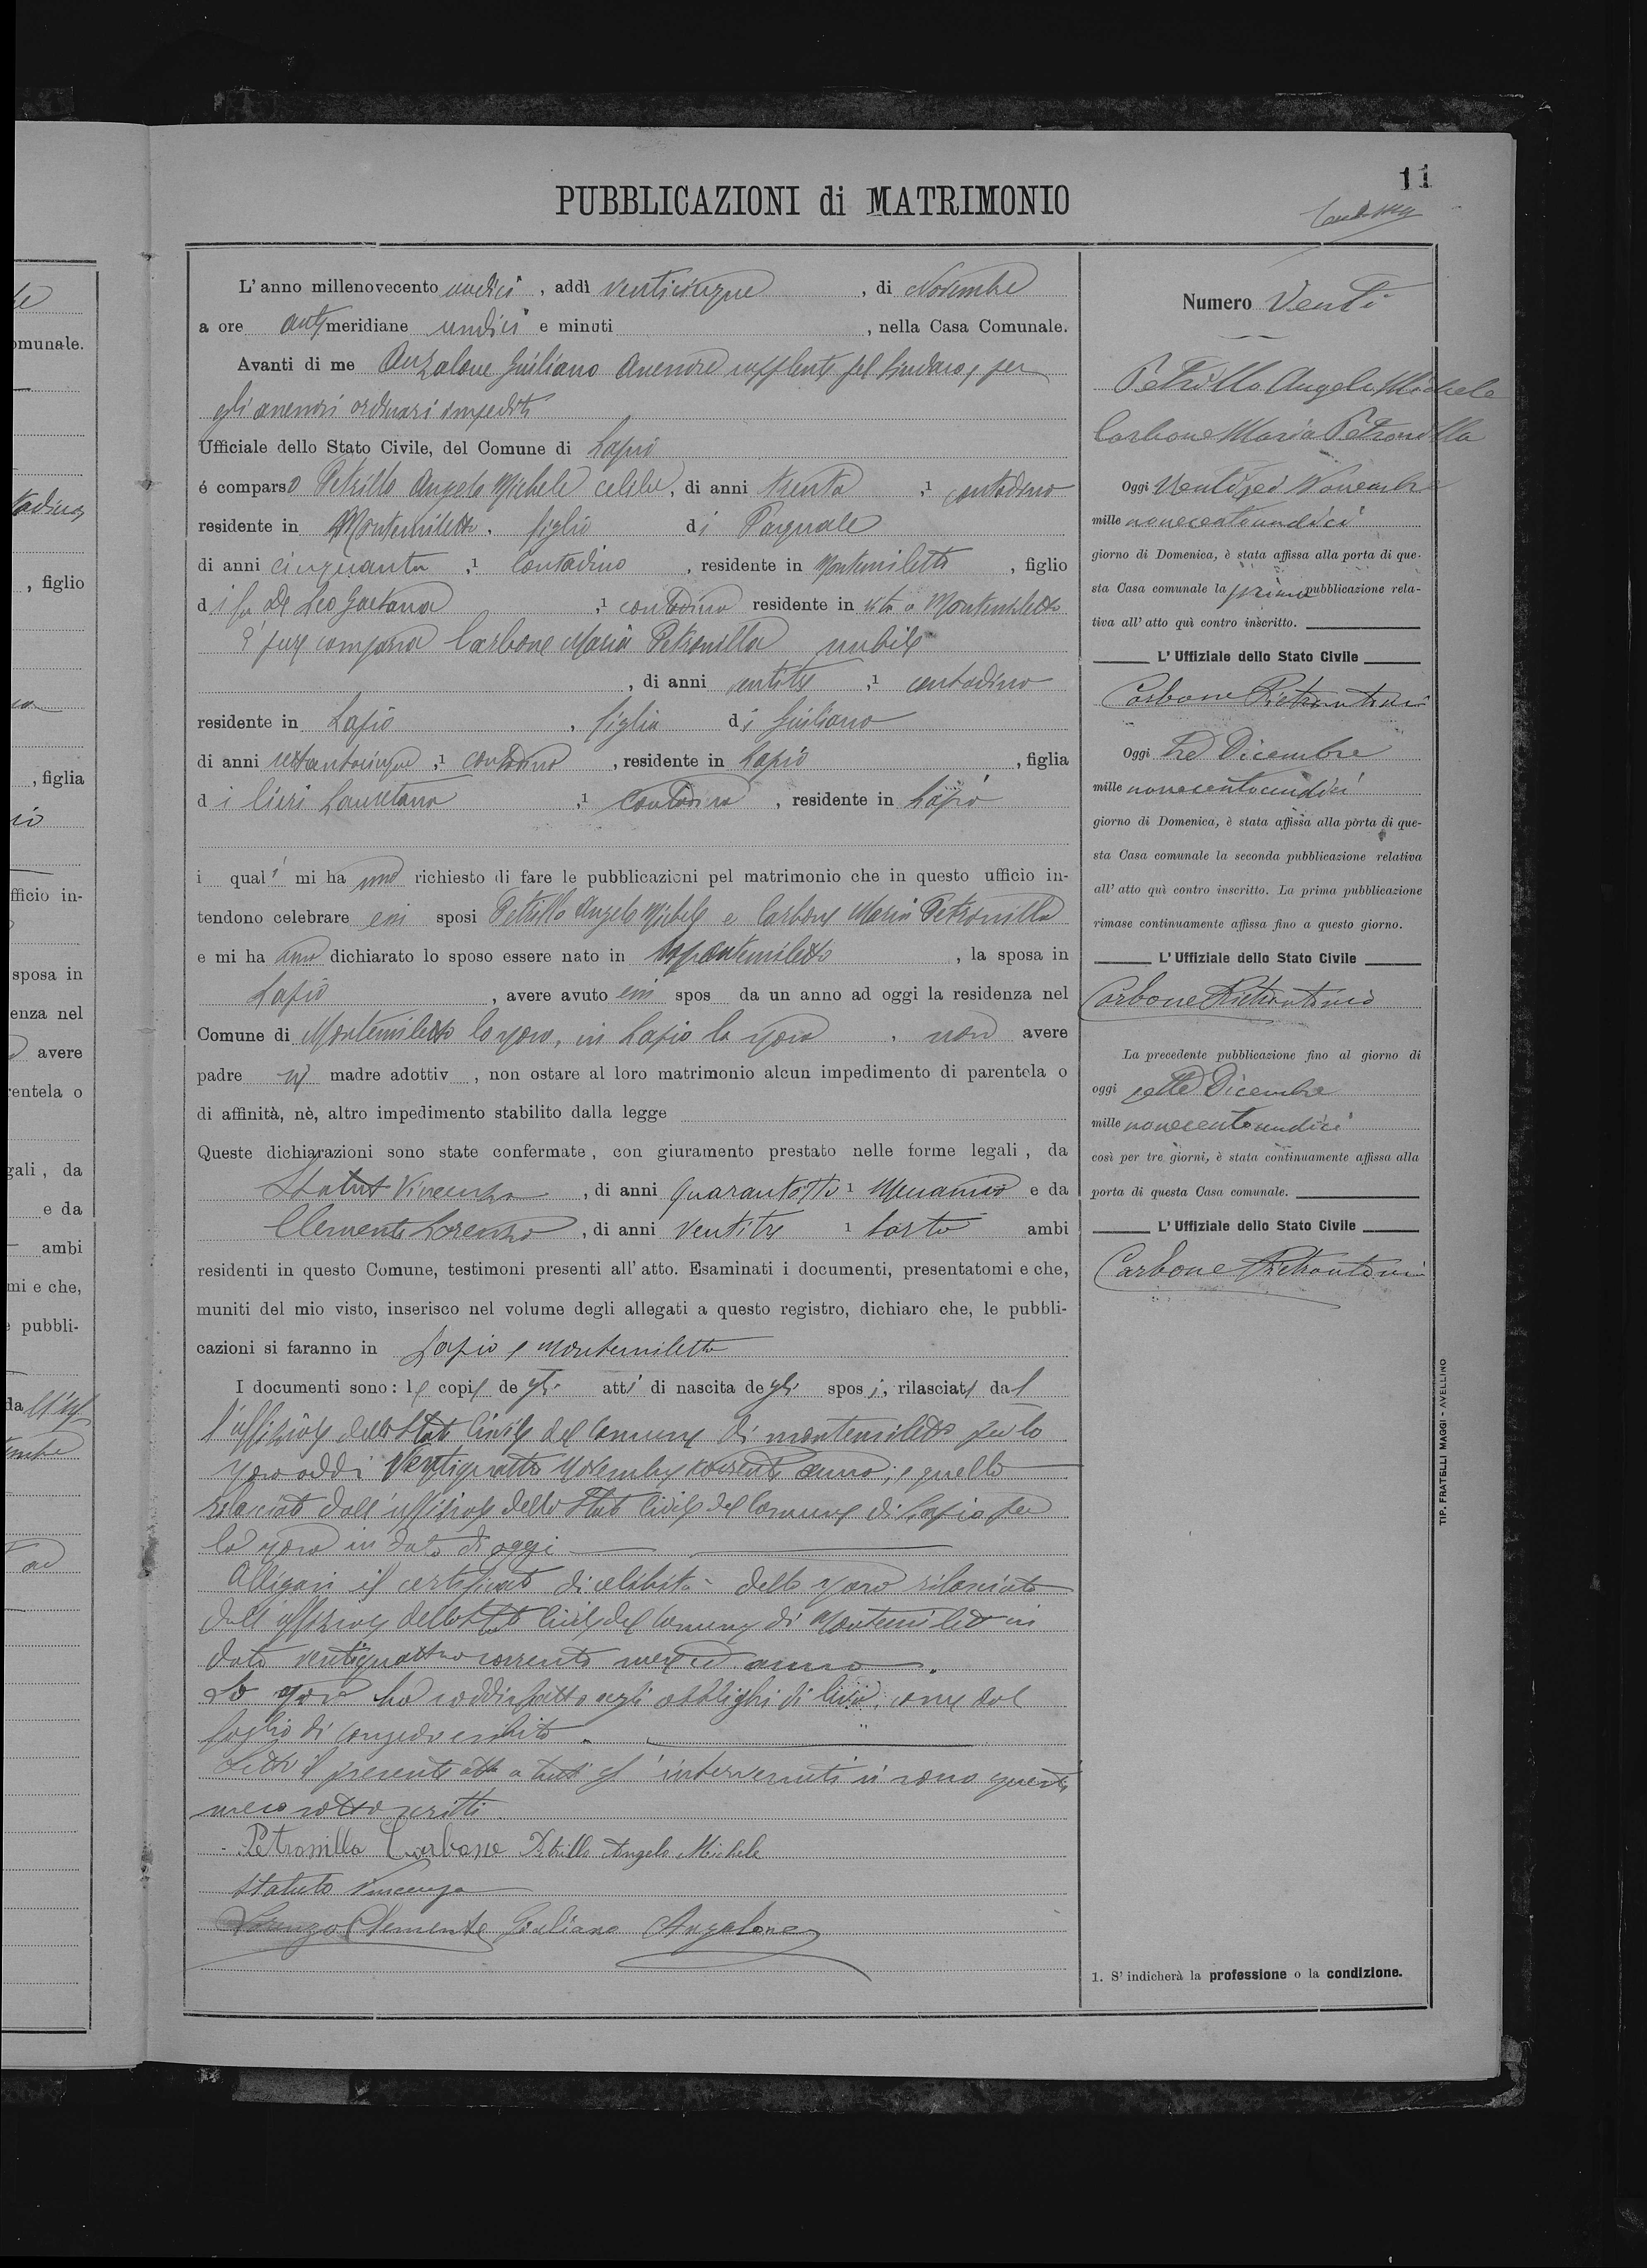 11
PUBBLICAZIONI di MATRIMONIO
L'anno millenovecento undici, addì venticinque, di Novembre
a ore antimeridiane undici e minuti , nella Casa Comunale.
Avanti di me Anzalone Giuliano Assessore supplente pel Sindaco, per
gli assessori ordinari impediti
Ufficiale dello Stato Civile, del Comune di Lapio
é comparso Petrillo Angelo Michele celibe, di anni trenta ,1 contadino
residente in Montemiletto, figlio di Pasquale
di anni cinquanta ,1 contadino, residente in Montemiletto, figlio
di fu De Leo Gaetana ,1 contadina residente in vita a Montemiletto
È pure comparsa Carbone Maria Petronilla nubile
, di anni ventitre ,1 contadina
residente in Lapio, figlia di Giuliano
di anni settantacinque ,1 contadino, residente in Lapio, figlia
di Cieri Lauretana ,1 contadina, residente in Lapio
i quali mi hanno richiesto di fare le pubblicazioni pel matrimonio che in questo ufficio in-
tendono celebrare essi sposi Petrillo Angelo Michele e Carbone Maria Petronilla
e mi hanno dichiarato lo sposo essere nato in Montemiletto, la sposa in
Lapio, avere avuto essi spos da un anno ad oggi la residenza nel
Comune di Montemiletto lo sposo, in Lapio la sposa, non avere
padre nè madre adottiv , non ostare al loro matrimonio alcun impedimento di parentela o
di affinità, nè, altro impedimento stabilito dalla legge
Queste dichiarazioni sono state confermate, con giuramento prestato nelle forme legali, da
Statuto Vincenzo, di anni quarantotto 1 Meccanico e da
Clemente Lorenzo, di anni ventitre 1 sarto ambi
residenti in questo Comune, testimoni presenti all'atto. Esaminati i documenti, presentatomi e che,
muniti del mio visto, inserisco nel volume degli allegati a questo registro, dichiaro che, le pubbli-
cazioni si faranno in Lapio e Montemiletto
I documenti sono: le copie degli atti di nascita degli sposi, rilasciate dal
l'uffiziale dello Stato Civile del Comune di Montemiletto per lo
sposo addì Ventiquattro Novembre corrente anno; e quello
rilasciato dall'uffiziale dello Stato Civile del Comune di Lapio per
la sposa in data di oggi
Alligasi il certificato di celibita dello sposo rilasciato
dall'uffiziale dello Stato Civile del Comune di Montemiletto in
data ventiquattro corrente mese ed anno.
Lo sposo ha soddisfatto agli obblighi di leva, come dal
foglio di congedo esibito.
Letto il presente atto a tutti gl'intervenuti si sono questi
meco sottoscritti.
Petronilla Carbone Petrillo Angelo Michele
Statuto Vincenzo
Lorenzo Clemente Giuliano Anzalone
Numero Venti
Petrillo Angelo Michele
Carbone Maria Petronilla
Oggi Ventisei Novembre
mille novecentoundici
giorno di Domenica, è stata affissa alla porta di que-
sta Casa comunale la prima pubblicazione rela-
tiva all'atto quì contro inscritto.
L'Uffiziale dello Stato Civile
Carbone Pietrantonio
Oggi tre Dicembre
mille novecentoundici
giorno di Domenica, è stata affissa alla porta di que-
sta Casa comunale la seconda pubblicazione relativa
all'atto quì contro inscritto. La prima pubblicazione
rimase continuamente affissa fino a questo giorno.
L'Uffiziale dello Stato Civile
Carbone Pietrantonio
La precedente pubblicazione fino al giorno di
oggi sette Dicembre
mille novecentoundici
così per tre giorni, è stata continuamente affissa alla
porta di questa Casa comunale.
L'Uffiziale dello Stato Civile
Carbone Pietrantonio
1. S'indicherà la professione o la condizione.
TIP. FRATELLI MAGGI - AVELLINO
omunale.
, figlio
, figlia
fficio in-
sposa in
enza nel
avere
rentela o
gali, da
e da
ambi
mi e che,
e pubbli-
da